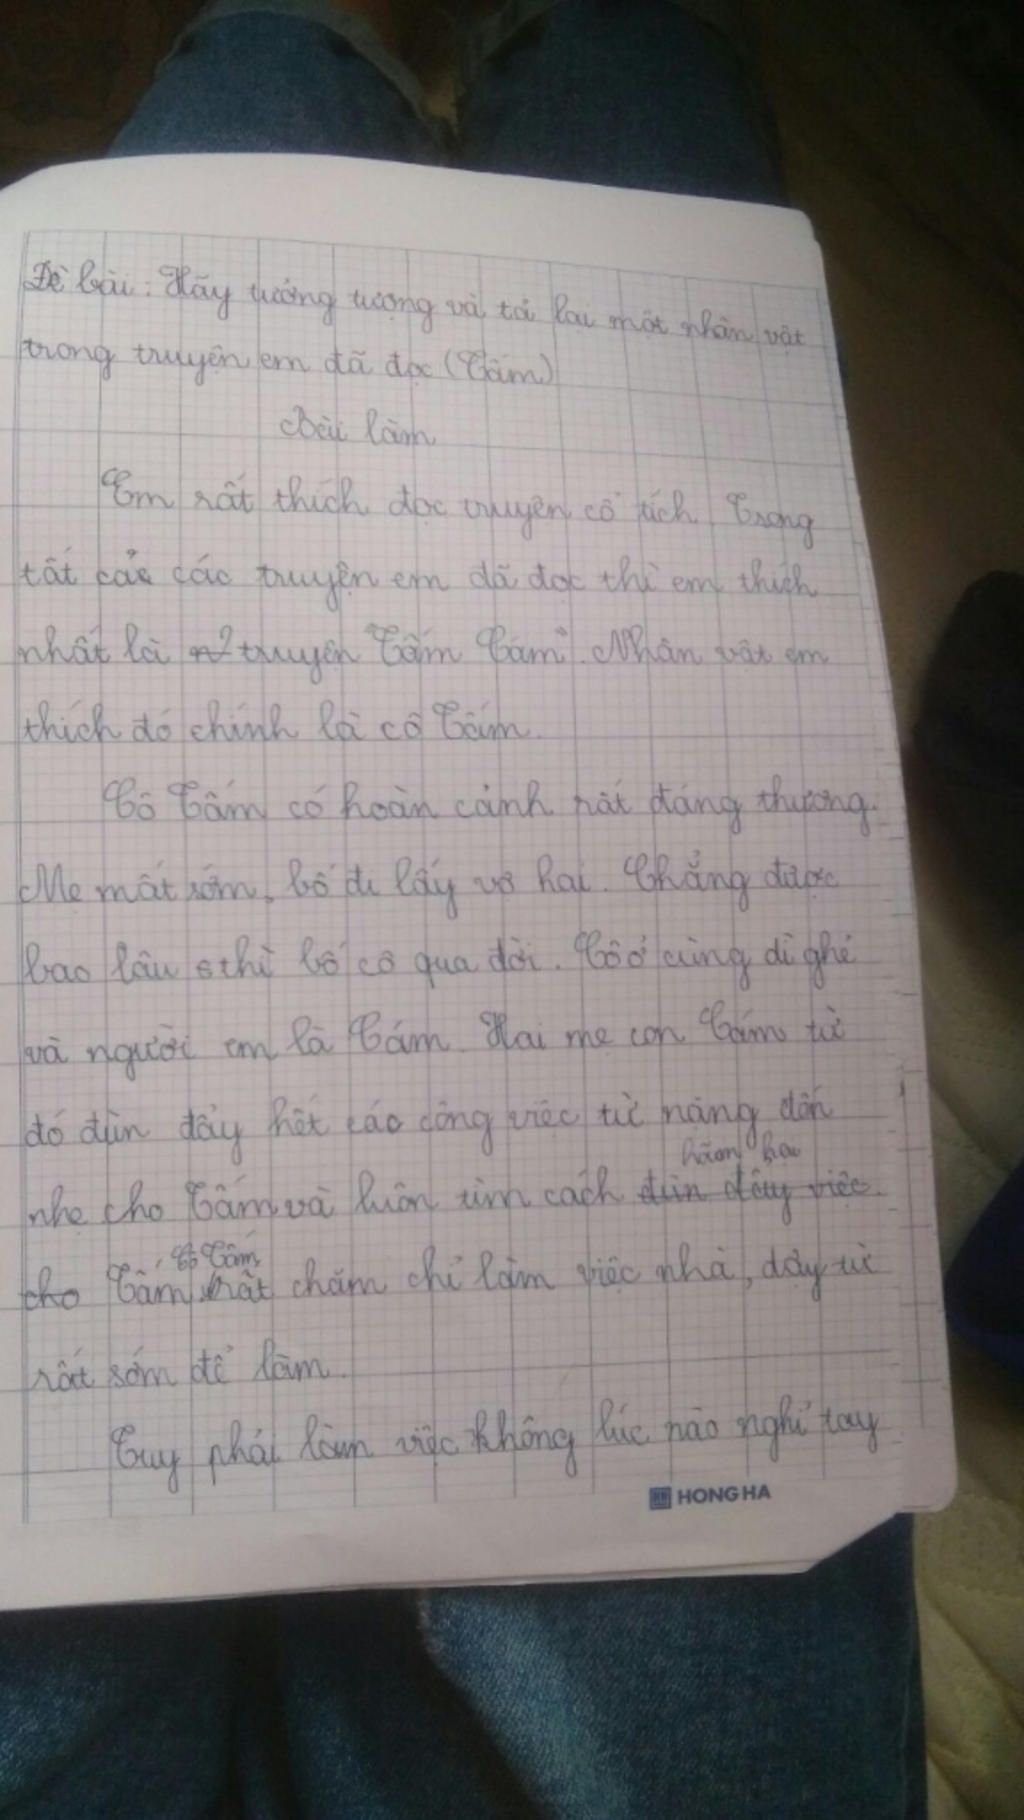 Đề bài: Hãy tưởng tượng và tả lại một nhân vật
trong truyện em đã đọc (Tấm)
Bài làm
Em rất thích đọc truyện cổ tích. Trong
tất cả các truyện em đã đọc thì em thích
nhất là truyện "Tấm Cám". Nhân vật em
thích đó chính là cô Tấm.
Cô Tấm có hoàn cảnh rất đáng thương.
Mẹ mất sớm, bố đi lấy vợ hai. Chẳng được
bao lâu thì bố cô qua đời. Cô ở cùng dì ghẻ
và người em là Cám. Hai mẹ con Cám từ
đó đùn đẩy hết các công việc từ nặng đến
hãm hại
nhẹ cho Tấm và luôn tìm cách đùn đẩy việc
Cô Tấm
cho Tấm rất chăm chỉ làm việc nhà, dậy từ
rất sớm để làm.
Tuy phải làm việc không lúc nào nghỉ tay
HONG HA